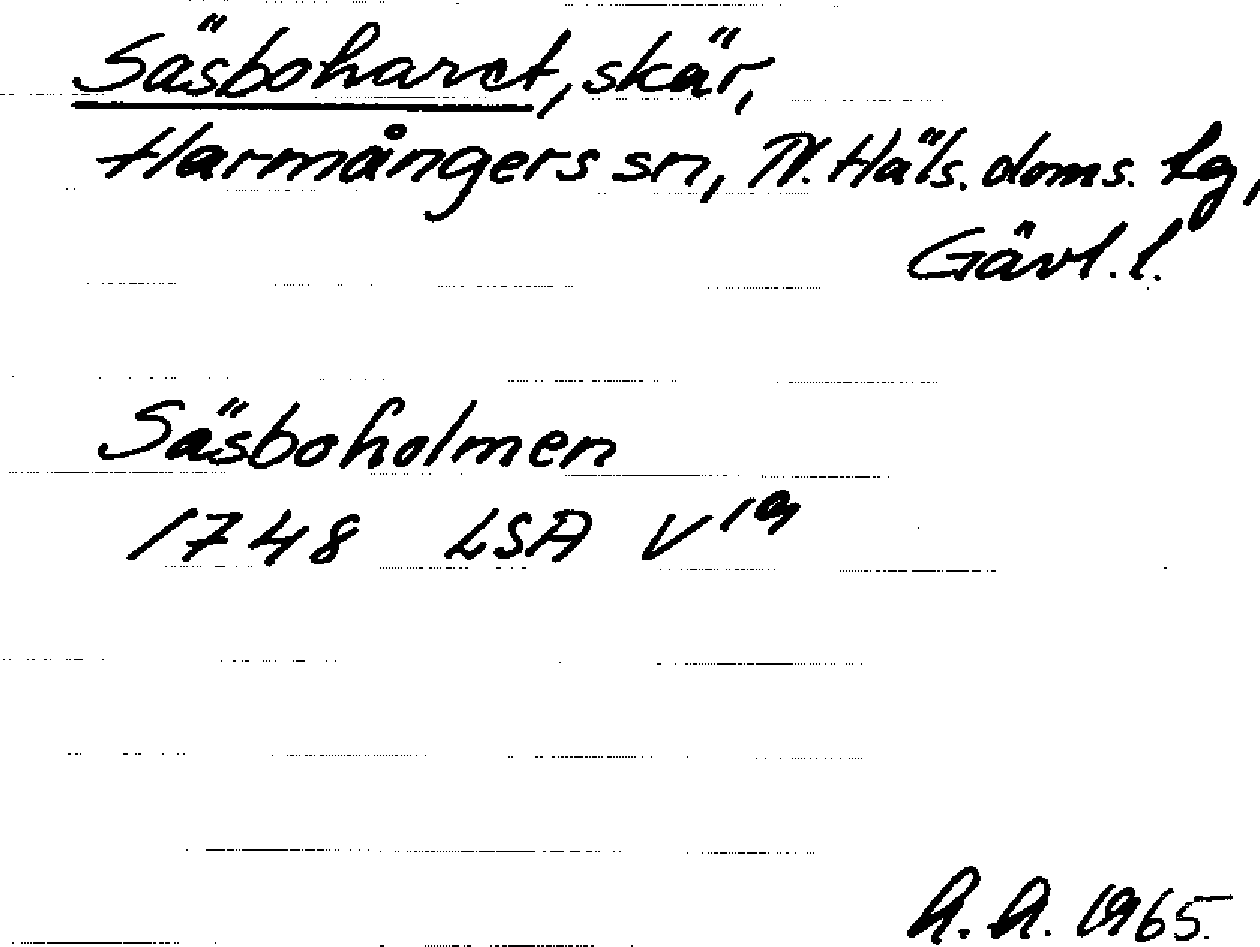 Säsboharet, skär,
Harmångers sn, N. Häls. doms. tg,
Gävl. l.
Säsboholmen
1748 LSA V 19
A. A. 1965.